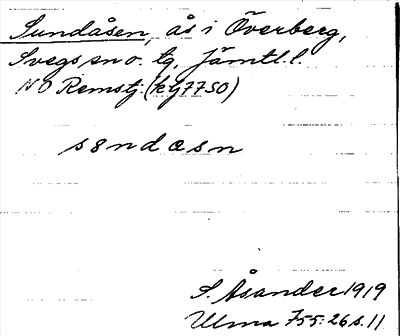 Sundåsen, ås i Överberg,
Svegs sn o. tg, Jämtl. l.
NO Remstj. (kg 7750)
s8ndæsn
S. Åsander 1919
Ulma 755:26 s. 11